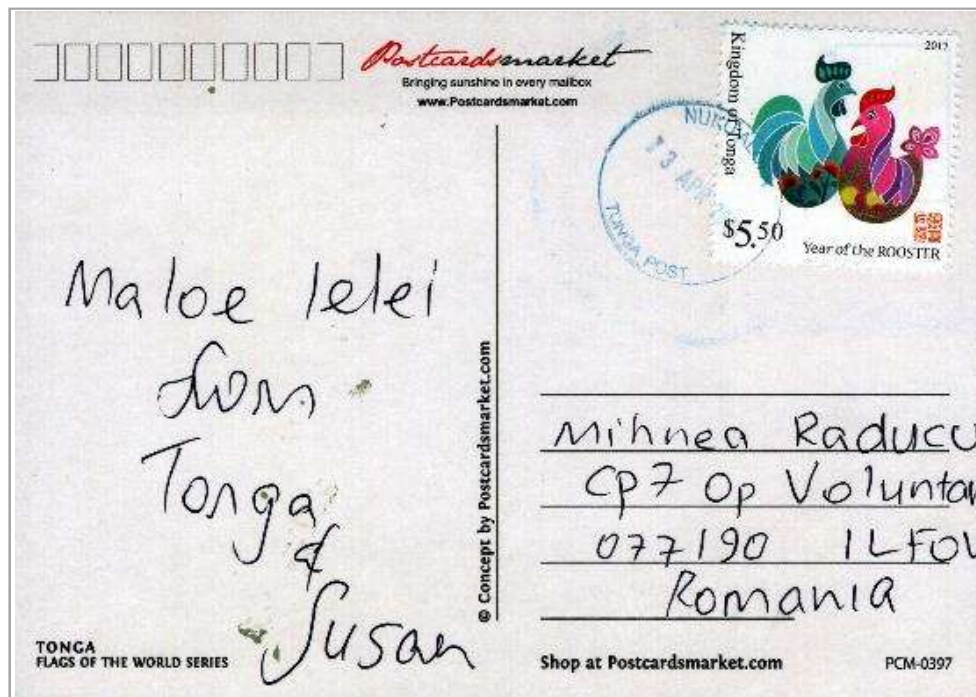 Postcardsmarket
Bringing sunshine in every mailbox
www.Postcardsmarket.com
Kingdom of Tonga
2017
$5.50
Year of the ROOSTER
13 APR
TONGA POST
Maloe lelei
from
Tonga
&
Susan
© Concept by Postcardsmarket.com
Mihnea Raducu
CP7 Op Voluntar
077190 ILFOV
Romania
TONGA
FLAGS OF THE WORLD SERIES
Shop at Postcardsmarket.com
PCM-0397